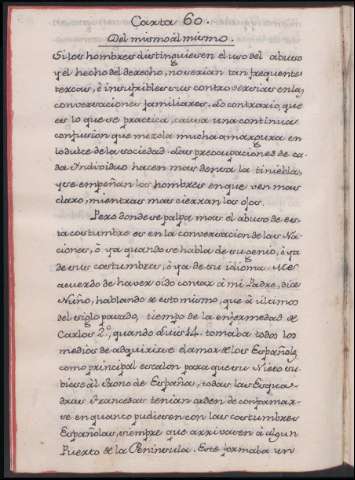 Carta 60.
Del mismo al mismo.
Si los hombres distinguiesen el uso del abuso
y el hecho del derecho, no serian tan frequentes
tercas, é insufribles sus controversias en las
conversaciones familiares. Lo contrario, que
es lo que se practica, causa una continua
confusion que mezcla mucha amargura en
lo dulce de la sociedad. Las preocupaciones de ca-
da Individuo hacen mas densa la tiniebla,
y se empeñan los hombres en que ven mas
claro, mientras mas cierran los ojos.
Pero donde se palpa mas el abuso de es-
ta costumbre es en la conversacion de las Na-
ciones, ó ya quando se habla de su genio, ó ya
de sus costumbres, ó ya de su idioma. Me
acuerdo de haver oido contar á mi Padre, dice
Nuño, hablando de esto mismo, que á ultimos
del siglo pasado, tiempo de la enfermedad de
Carlos 2º, quando Luis 14. tomaba todos los
medios de adquirirse el amor de los Españoles,
como principal escalon para que su Nieto su-
biese al trono de España, todas las Esqua-
dras Francesas tenian orden de conformar-
se en quanto pudiesen con las costumbres
Españolas, siempre que arrivasen á algun
Puerto de la Peninsula. Este formaba un